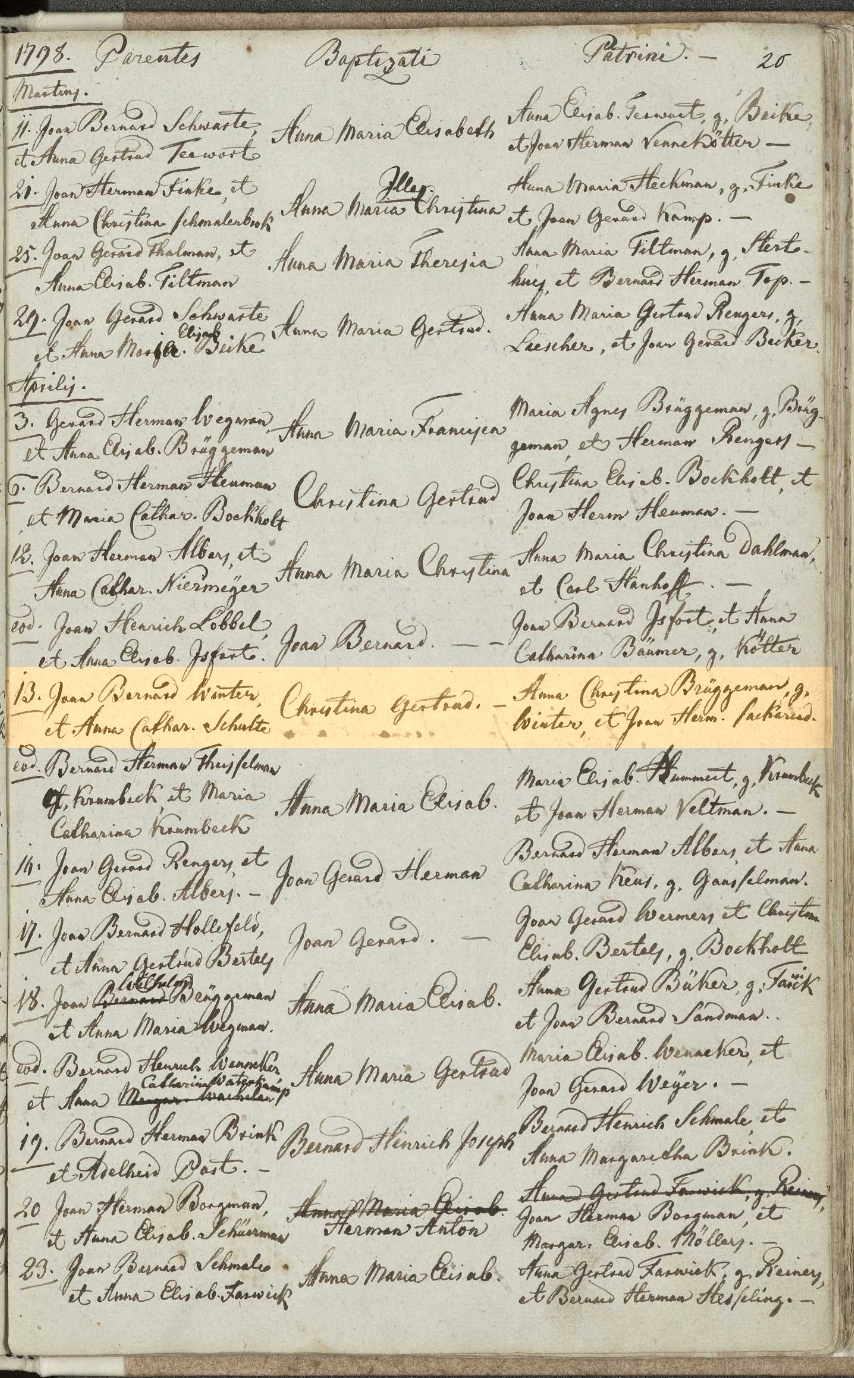 1798. Parentes Baptizati Patrini. — 20
Martius.
11. Joan Bernard Schwarte, Anna Maria Elisabeth Anna Elisab. Terwort, g. Beike,
et Anna Gertrud Terwort et Joan Herman Vennekötter —
21. Joan Herman Finke, et Illeg. Anna Maria Heckman, g. Finke
Anna Christina Schmalerbrok Anna Maria Christina et Joan Gerard Kamp. —
25. Joan Gerard Thalman, et Anna Maria Theresia Anna Maria Tiltman, g. Stert-
Anna Elisab. Tiltman hues, et Bernard Herman Top. —
29. Joan Gerard Schwarte Anna Maria Gertrud. Anna Maria Gertrud Rengers, g.
et Anna Maria Elisab. Beike Laescher, et Joan Gerard Becker.
Aprilis.
3. Gerard Herman Wegman Anna Maria Francisca Maria Agnes Brüggeman, g. Brüg-
et Anna Elisab. Brüggeman geman, et Herman Rengers —
6. Bernard Herman Heuman Christina Gertrud Christina Elisab. Bockholt, et
et Maria Cathar. Bockholt Joan Herm Heuman. —
12. Joan Herman Albers, et Anna Maria Christina Anna Maria Christina Dahlman,
Anna Cathar. Niermeyer et Carl Hanhoff. —
eod. Joan Henrich Löbbel, Joan Bernard. — — Joan Bernard Isfort, et Anna
et Anna Elisab. Isfort. Catharina Bäumer, g. Kötter
13. Joan Bernard Winter, Christina Gertrud. — Anna Christina Brüggeman, g.
et Anna Cathar. Schulte Winter, et Joan Herm.
eod. Bernard Herman Theisselman Maria Elisab. Hummert, g. Krumbeck
g. Krumbeck, et Maria Anna Maria Elisab. et Joan Herman Veltman. —
Catharina Krumbeck
14. Joan Gerard Rengers, et Joan Gerard Herman Bernard Herman Albers, et Anna
Anna Elisab. Albers. — Catharina Keus, g. Gausselman.
17. Joan Bernard Hollefeld, Joan Gerard. — Joan Gerard Wermers et Christina
et Anna Gertrud Bertels Elisab. Bertels, g. Bockholt
18. Joan Bernard Wilhelm Brüggeman Anna Maria Elisab. Anna Gertrud Büker, g.
et Anna Maria Wegman. et Joan Bernard Sandman..
eod. Bernard Henrich Wenneker Anna Maria Gertrud Maria Elisab. Wenneker, et
et Anna Catharina Waterkamp Joan Gerard Weyer. —
19. Bernard Herman Brink Bernard Hinrich Joseph Bernard Henrich Schmale, et
et Adelheid Post. — Anna Margaretha Brink.
20 Joan Herman Borgman, Anna Maria Elisab. Anna Gertrud Farwick, g. Reiners,
et Anna Elisab. Schürman Herman Anton Joan Herman Borgman, et
Margar. Elisab. Möllers. —
23. Joan Bernard Schmale Anna Maria Elisab. Anna Gertrud Farwick, g. Reiners,
et Anna Elisab. Farwick et Bernard Herman Hesseling. —